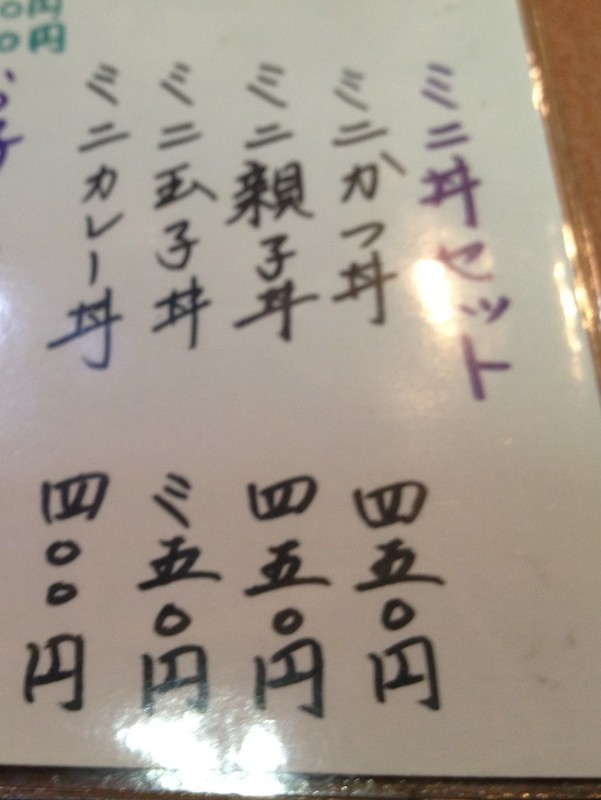 ミニ丼セット
ミニかつ丼 四五〇円
ミニ親子丼 四五〇円
ミニ玉子丼 三五〇円
ミニカレー丼 四〇〇円
0円
0円